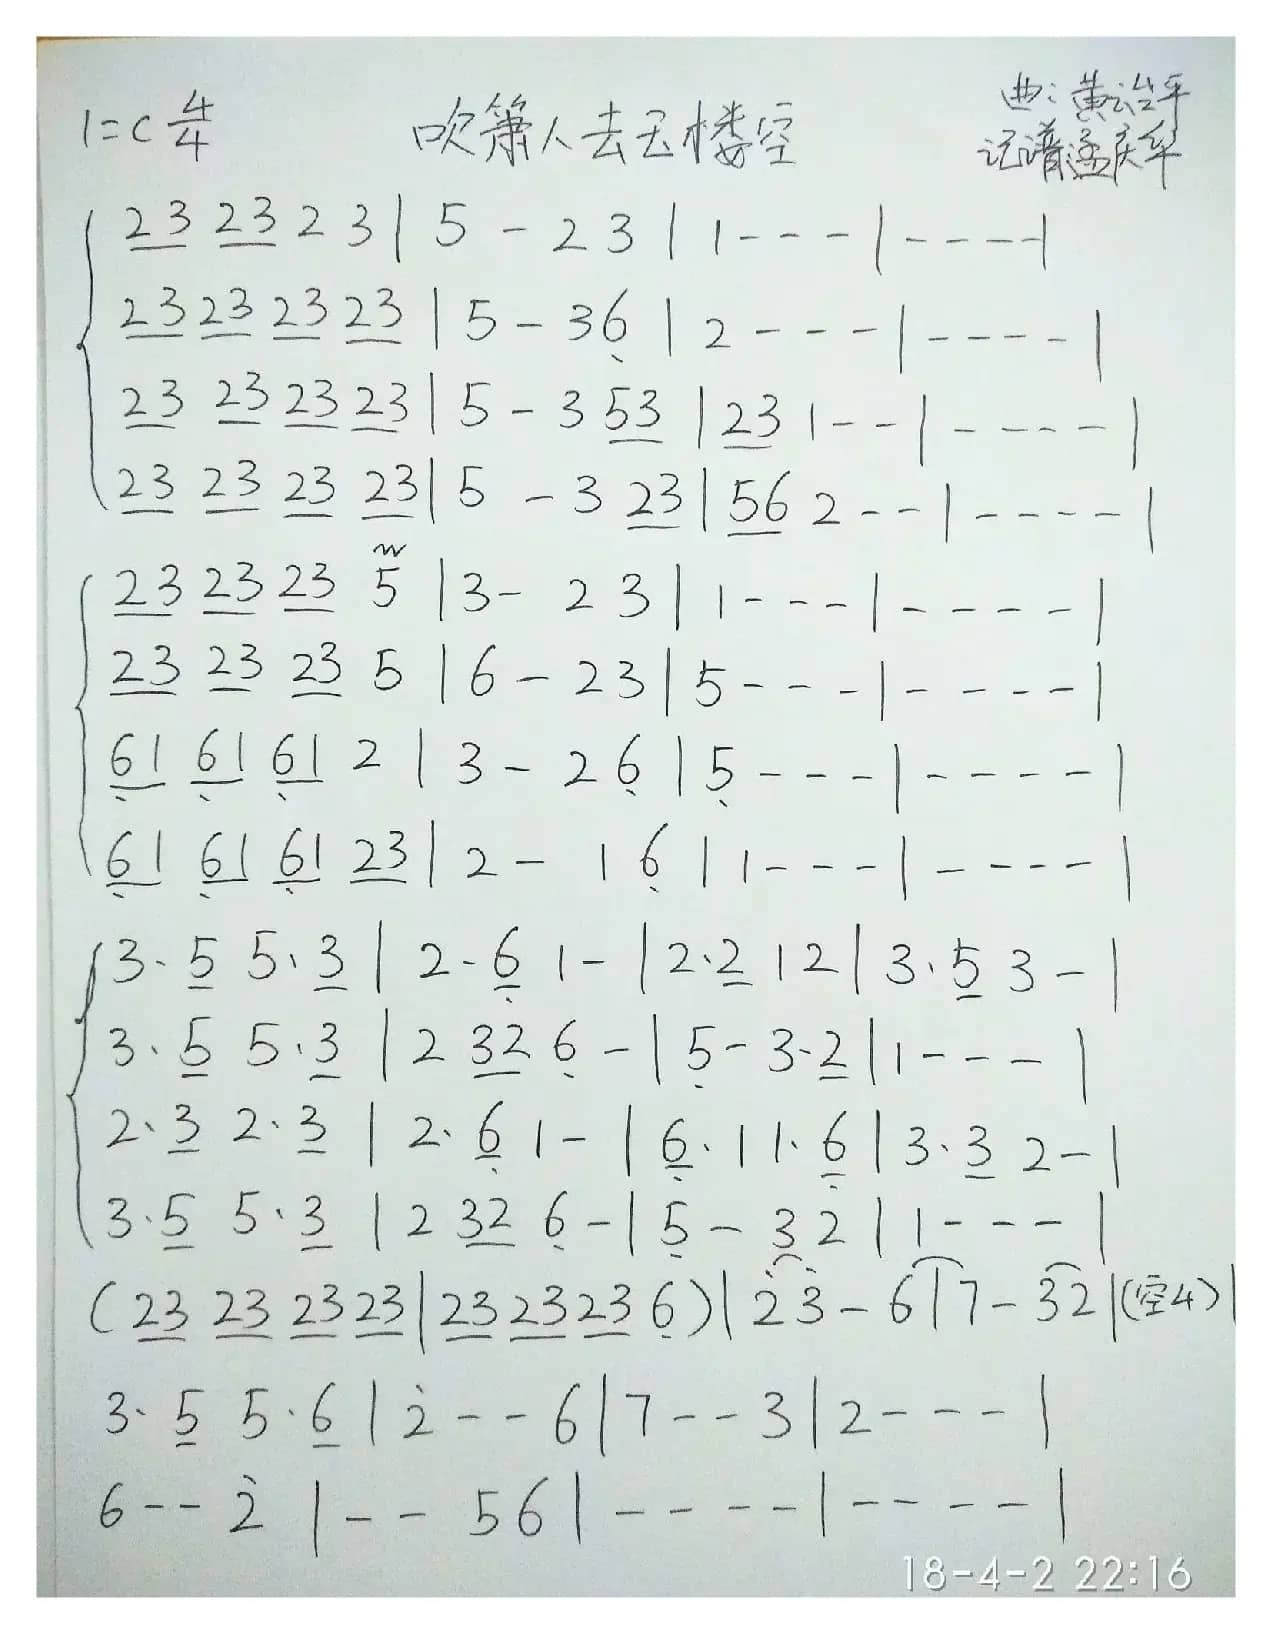 1=C 4/4 吹箫人去玉楼空 曲:黄治平
记谱孟庆华
2̲3̲ 2̲3̲ 2 3 | 5 - 2 3 | 1 - - - | - - - - |
2̲3̲ 2̲3̲ 2̲3̲ 2̲3̲ | 5 - 3 6̣ | 2 - - - | - - - - |
2̲3̲ 2̲3̲ 2̲3̲ 2̲3̲ | 5 - 3 5̲3̲ | 2̲3̲ 1 - - | - - - - |
2̲3̲ 2̲3̲ 2̲3̲ 2̲3̲ | 5 - 3 2̲3̲ | 5̲6̲ 2 - - | - - - - |
2̲3̲ 2̲3̲ 2̲3̲ 5 | 3 - 2 3 | 1 - - - | - - - - |
2̲3̲ 2̲3̲ 2̲3̲ 5 | 6 - 2 3 | 5 - - - | - - - - |
6̣̲1̲ 6̣̲1̲ 6̣̲1̲ 2 | 3 - 2 6̣ | 5̣ - - - | - - - - |
6̣̲1̲ 6̣̲1̲ 6̣̲1̲ 2̲3̲ | 2 - 1 6̣ | 1 - - - | - - - - |
3· 5̲ 5· 3̲ | 2· 6̣̲ 1 - | 2· 2̲ 1 2 | 3· 5̲ 3 - |
3· 5̲ 5· 3̲ | 2 3̲2̲ 6̣ - | 5̣ - 3· 2̲ | 1 - - - |
2· 3̲ 2· 3̲ | 2· 6̣̲ 1 - | 6̣̲· 1 1· 6̣̲ | 3· 3̲ 2 - |
3· 5̲ 5· 3̲ | 2 3̲2̲ 6̣ - | 5̣ - 3 2 | 1 - - - |
(2̲3̲ 2̲3̲ 2̲3̲ 2̲3̲ | 2̲3̲ 2̲3̲ 2̲3̲ 6̣) | 2̇ 3̇ - 6 | 7 - 3 2 | (空4) |
3· 5̲ 5· 6̲ | 2̇ - - 6 | 7 - - 3 | 2 - - - |
6 - - 2̇ | - - 5 6 | - - - - | - - - - |
18-4-2 22:16